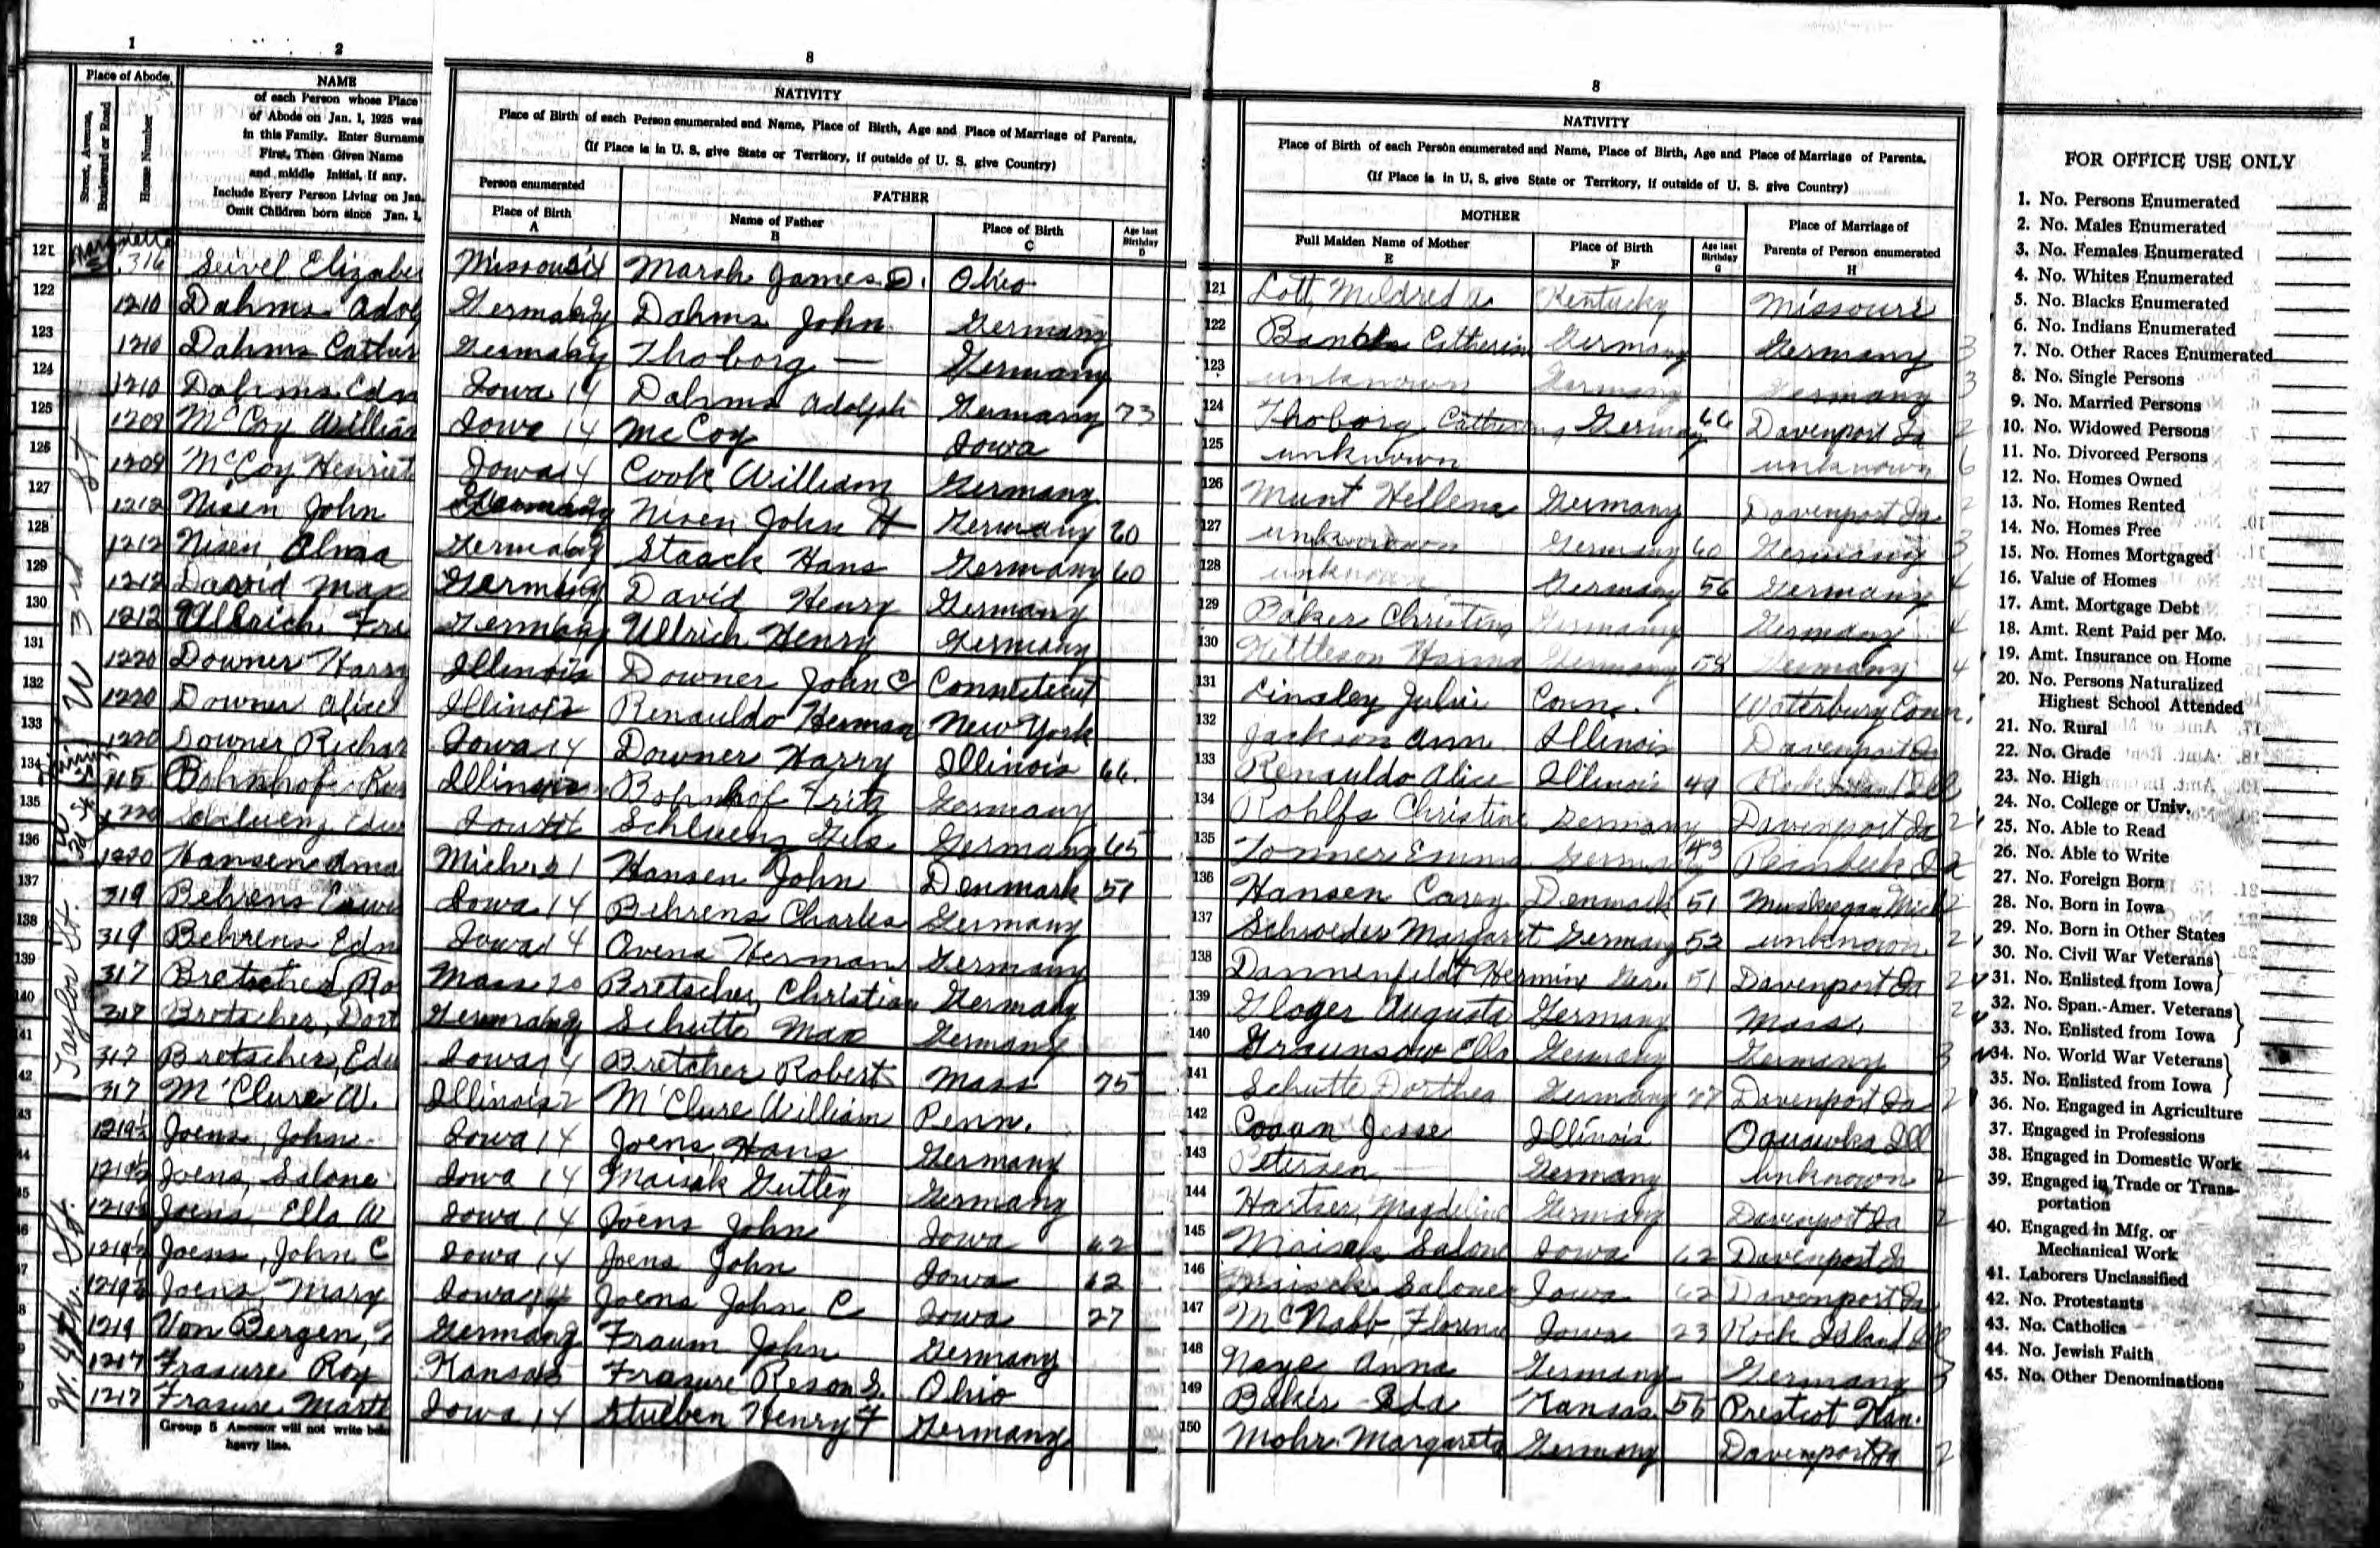 1 2
Place of Abode
Street, Avenue, Boulevard or Road
House Number
NAME
of each Person whose Place
of Abode on Jan. 1, 1925 was
in this Family. Enter Surname
First, Then Given Name
and middle Initial, if any.
Include Every Person Living on Jan.
Omit Children born since Jan. 1,
8
NATIVITY
Place of Birth of each Person enumerated and Name, Place of Birth, Age and Place of Marriage of Parents.
(If Place is in U. S. give State or Territory, if outside of U. S. give Country)
Person enumerated
Place of Birth
A
FATHER
Name of Father
B
Place of Birth
C
Age last Birthday
D
8
NATIVITY
Place of Birth of each Person enumerated and Name, Place of Birth, Age and Place of Marriage of Parents.
(If Place is in U. S. give State or Territory, if outside of U. S. give Country)
MOTHER
Full Maiden Name of Mother
E
Place of Birth
F
Age last Birthday
G
Place of Marriage of
Parents of Person enumerated
H
W 3rd St
Taylor St.
W. 4th. St.
121 316 Elizabe Missouri Marsh James D. Ohio 121 Lott, Mildred A. Kentucky Missouri
122 1210 Dahms Adol Germany Dahms John Germany 122 Catherin Germany Germany 3
123 1210 Dahms Cather Germany Thoborg — Germany 123 unknown Germany Germany 3
124 1210 Dahms Edn Iowa 14 Dahms Adolph Germany 73 124 Thoborg Catherin Germany 66 Davenport Ia 2
125 1208 McCoy William Iowa 14 McCoy Iowa 125 unknown unknown 6
126 1208 McCoy Henriet Iowa 14 Cook William Germany 126 Munt Hellena Germany Davenport Ia 2
127 1212 Nisen John Germany Nisen John H Germany 60 127 unknown Germany 60 Germany 3
128 1212 Nisen Alma Germany Staack Hans Germany 60 128 unknown Germany 56 Germany 4
129 1212 David Max Germany David Henry Germany 129 Baker Christina Germany Germany 4
130 1212 Ullrich Fre Germany Ullrich Henry Germany 130 Hanna Germany 58 Germany 4
131 1220 Downer Harry Illinois Downer John C Connecticut 131 Linsley Julia Conn. Waterbury Conn.
132 1220 Downer Alice Illinois 12 Renauldo Herman New York 132 Jackson Ann Illinois Davenport Ia
133 1220 Downer Richar Iowa 14 Downer Harry Illinois 66 133 Renauldo Alice Illinois 49 Rock Island Ill
134 115 Bohnhof Illinois Bohnhof Fritz Germany 134 Rohlfs Christine Germany Davenport Ia 2
135 1220 Schlueng Edw Iowa 14 Schlueng Germany 65 135 Tonner Emma Germany 63 Reinbeck Ia 2
136 1220 Hansen Ama Mich 21 Hansen John Denmark 51 136 Hansen Carry Denmark 51 Muskegan Mich 2
137 319 Behrens Iowa 14 Behrens Charles Germany 137 Schroeder Margaret Germany 52 unknown 2
138 319 Behrens Edn Iowa 14 Ovens Herman Germany 138 Dannenfeldt Hermine Ger. 51 Davenport Ia 2
139 317 Bretscher, Ro Mass 20 Bretscher, Christian Germany 139 Gloger Augusta Germany Mass. 2
140 317 Bretscher, Dort Germany Schutte Max Germany 140 Ella Germany Germany 3
141 317 Bretscher, Edw Iowa 14 Bretcher Robert Mass 75 141 Schutte Dorthea Germany 77 Davenport Ia 2
142 317 McClure W. Illinois 12 McClure William Penn. 142 Jesse Illinois Oquawka Ill
143 1219½ Joens, John Iowa 14 Joens, Hans Germany 143 Petersen Germany unknown 2
144 1219½ Joens, Salone Iowa 14 Maisak Germany 144 Magdeline Germany Davenport Ia 2
145 1219½ Joens, Ella W Iowa 14 Joens John Iowa 62 145 Maisak Salone Iowa 62 Davenport Ia
146 1219½ Joens, John C Iowa 14 Joens John Iowa 62 146 Maisak Salone Iowa 62 Davenport Ia
147 1219½ Joens, Mary Iowa 14 Joens John C Iowa 27 147 McNabb, Florence Iowa 23 Rock Island Ill
148 1219 Von Bergen, Germany Fraum John Germany 148 Naye Anna Germany Germany 3
149 1217 Frasure Roy Kansas Frasure Reson S. Ohio 149 Baker Ida Kansas 55 Prestcot Kan.
150 1217 Frasure Mart Iowa 14 Stueben Henry F Germany 150 Mohr Margareta Germany Davenport Ia 2
Group 5 Assessor will not write below
heavy line.
FOR OFFICE USE ONLY
1. No. Persons Enumerated
2. No. Males Enumerated
3. No. Females Enumerated
4. No. Whites Enumerated
5. No. Blacks Enumerated
6. No. Indians Enumerated
7. No. Other Races Enumerated
8. No. Single Persons
9. No. Married Persons
10. No. Widowed Persons
11. No. Divorced Persons
12. No. Homes Owned
13. No. Homes Rented
14. No. Homes Free
15. No. Homes Mortgaged
16. Value of Homes
17. Amt. Mortgage Debt
18. Amt. Rent Paid per Mo.
19. Amt. Insurance on Home
20. No. Persons Naturalized
Highest School Attended
21. No. Rural
22. No. Grade
23. No. High
24. No. College or Univ.
25. No. Able to Read
26. No. Able to Write
27. No. Foreign Born
28. No. Born in Iowa
29. No. Born in Other States
30. No. Civil War Veterans
31. No. Enlisted from Iowa
32. No. Span.-Amer. Veterans
33. No. Enlisted from Iowa
34. No. World War Veterans
35. No. Enlisted from Iowa
36. No. Engaged in Agriculture
37. Engaged in Professions
38. Engaged in Domestic Work
39. Engaged in Trade or Trans-
portation
40. Engaged in Mfg. or
Mechanical Work
41. Laborers Unclassified
42. No. Protestants
43. No. Catholics
44. No. Jewish Faith
45. No. Other Denominations